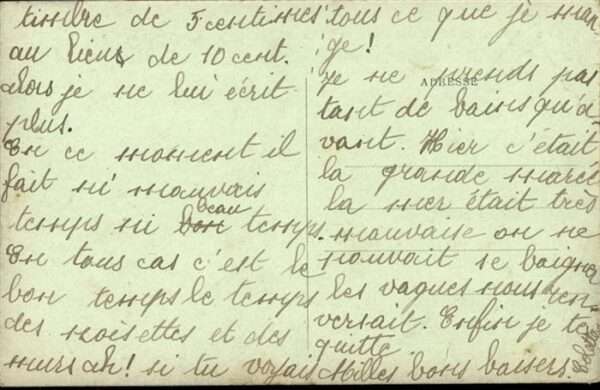 timbre de 5 centimes
au lieux de 10 cent.
alors je ne lui écrit
plus.
En ce moment il
fait ni mauvais
temps ni beau temps.
En tous cas c'est le
bon temps le temps
des noisettes et des
mures ah! si tu voyais
tous ce que je man
ge!
ADRESSE
Je ne prends pas
tant de bains qu'a-
vant. Hier c'était
la grande marée
la mer était très
mauvaise on ne
pouvait se baigner
les vagues nous ren
versait. Enfin je te
quitte
Milles bons baisers.